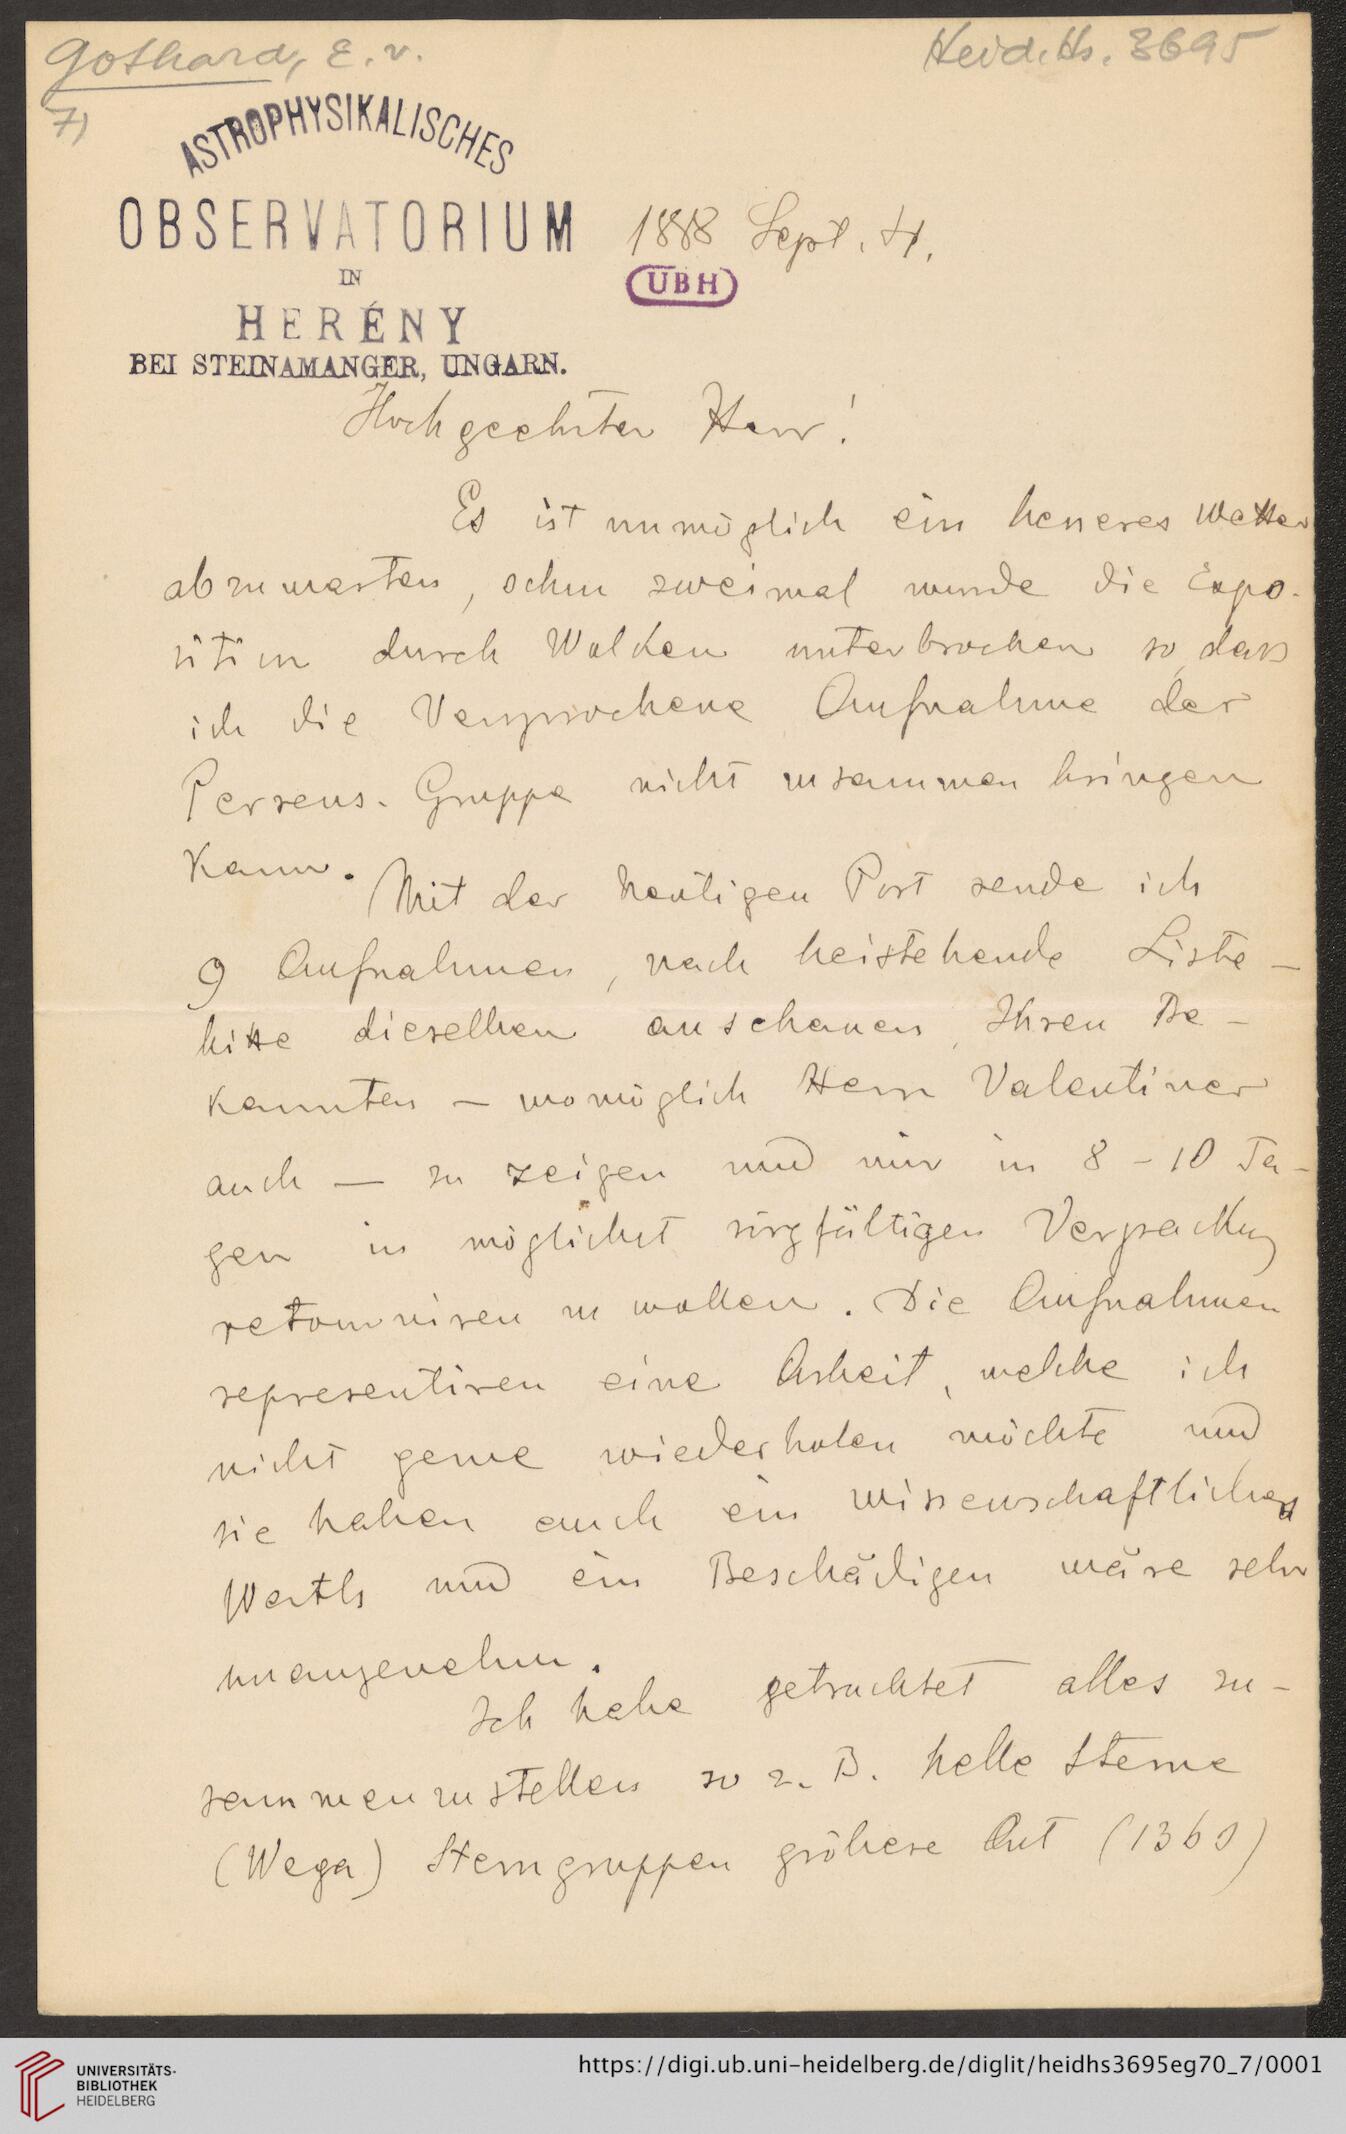 Gothard, E. v.
Heid. Hs. 3695
7)
ASTROPHYSIKALISCHES
OBSERVATORIUM
IN
HERÉNY
BEI STEINAMANGER, UNGARN.
1888 Sept. 4.
UBH
Hochgeehrter Herr!
Es ist unmöglich ein besseres Wetter
abzuwarten, schon zweimal wurde die Expo-
sition durch Wolken unterbrochen so dass
ich die Versprochene Aufnahme der
Perseus-Gruppe nicht zusammen bringen
kann.
Mit der heutigen Post sende ich
9 Aufnahmen, nach beistehende Liste –
bitte dieselben anschauen, Ihren Be-
kannten – womöglich Herrn Valentiner
auch – zu zeigen und mir in 8 – 10 Ta-
gen in möglichst sorgfältigen Verpackung
retourniren zu wollen. Die Aufnahmen
representiren eine Arbeit, welche ich
nicht gerne wiederholen möchte und
sie haben auch ein wissenschaftliches
Werth und ein Beschädigen wäre sehr
unangenehm.
Ich habe getrachtet alles zu-
sammenzustellen so z. B. helle Sterne
(Wega) Sterngruppen gröbere Art (1360)
UNIVERSITÄTS-
BIBLIOTHEK
HEIDELBERG
https://digi.ub.uni-heidelberg.de/diglit/heidhs3695eg70_7/0001